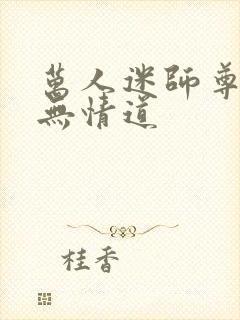 萬人迷師尊
無情道
桂香